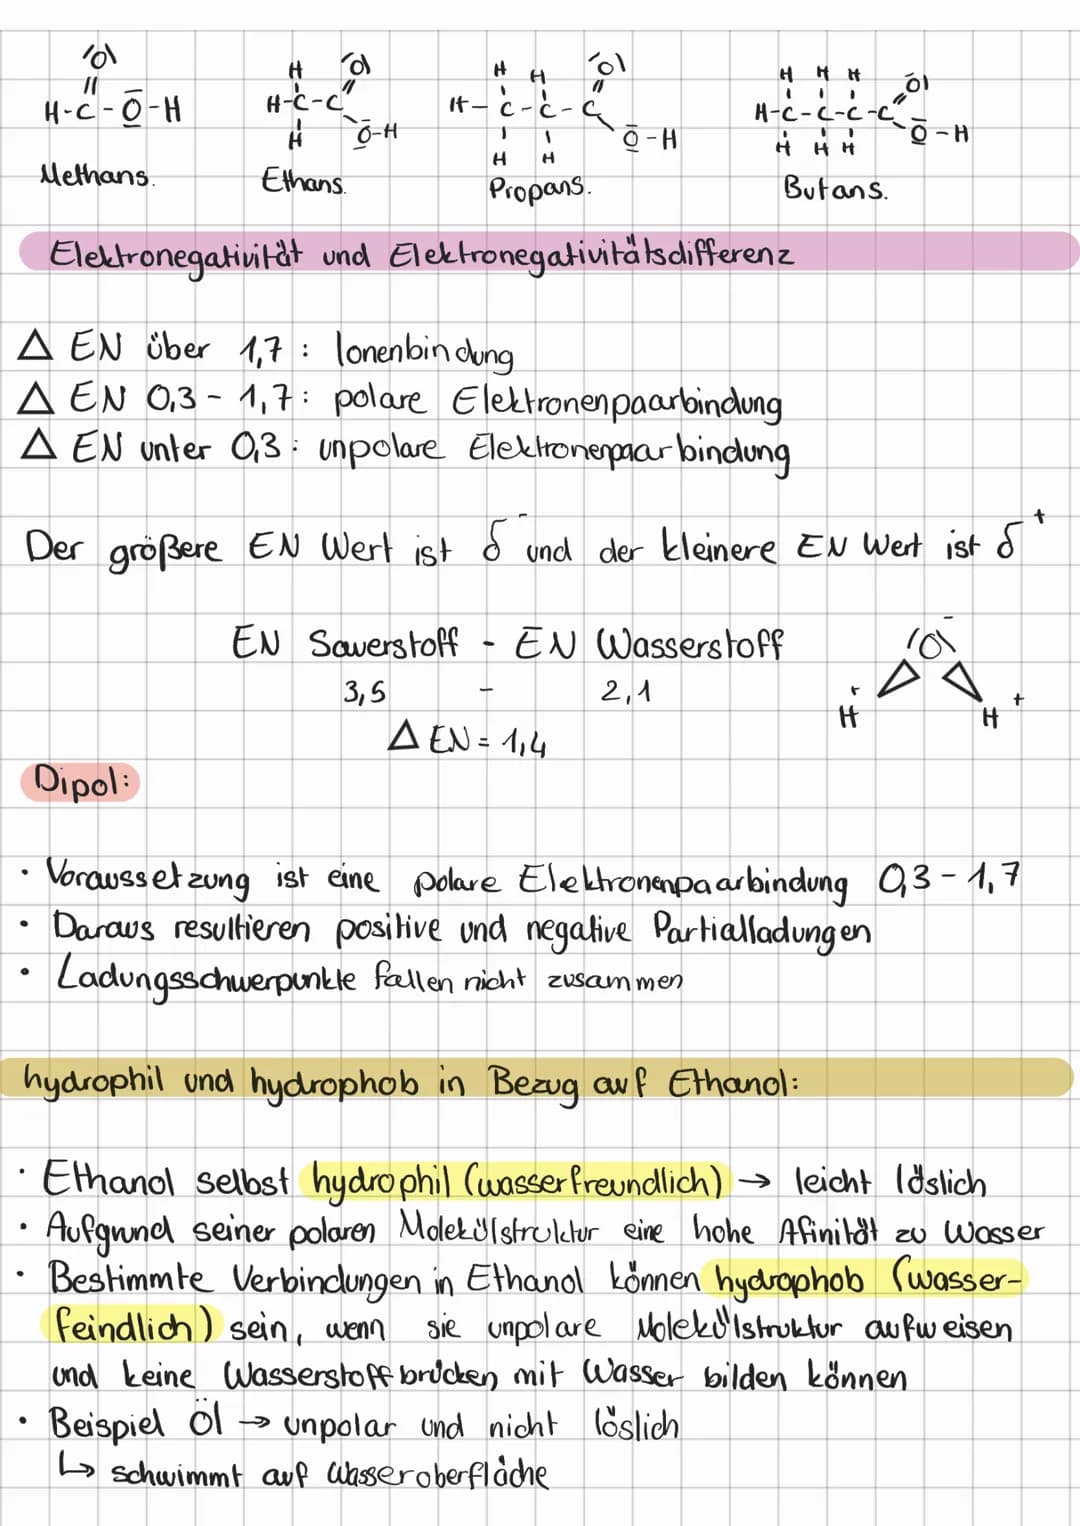 Methans.
Ethans.
Propans.
Butans.
Elektronegativität und Elektronegativitätsdifferenz
Δ EN über 1,7 : Ionenbindung
Δ EN 0,3 - 1,7: polare Elektronenpaarbindung
Δ EN unter 0,3 : unpolare Elektronenpaarbindung
Der größere EN Wert ist δ⁻ und der kleinere EN Wert ist δ⁺
EN Sauerstoff - EN Wasserstoff
3,5 - 2,1
Δ EN = 1,4
Dipol:
· Voraussetzung ist eine polare Elektronenpaarbindung 0,3 - 1,7
· Daraus resultieren positive und negative Partialladungen
· Ladungsschwerpunkte fallen nicht zusammen
hydrophil und hydrophob in Bezug auf Ethanol:
· Ethanol selbst hydrophil (wasserfreundlich) → leicht löslich
· Aufgrund seiner polaren Molekülstruktur eine hohe Afinität zu Wasser
· Bestimmte Verbindungen in Ethanol können hydrophob (wasser-
feindlich) sein, wenn sie unpolare Molekülstruktur aufweisen
und keine Wasserstoffbrücken mit Wasser bilden können
· Beispiel Öl → unpolar und nicht löslich
↳ schwimmt auf Wasseroberfläche